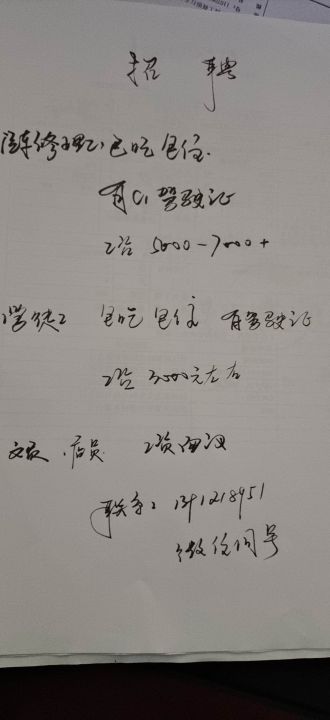 招 聘
汽车修理工 包吃包住
有C1驾驶证
工资 5000-7000+
学徒工 包吃 包住 有驾驶证
工资 3000元左右
文员、店员 工资面议
联系:
微信同号